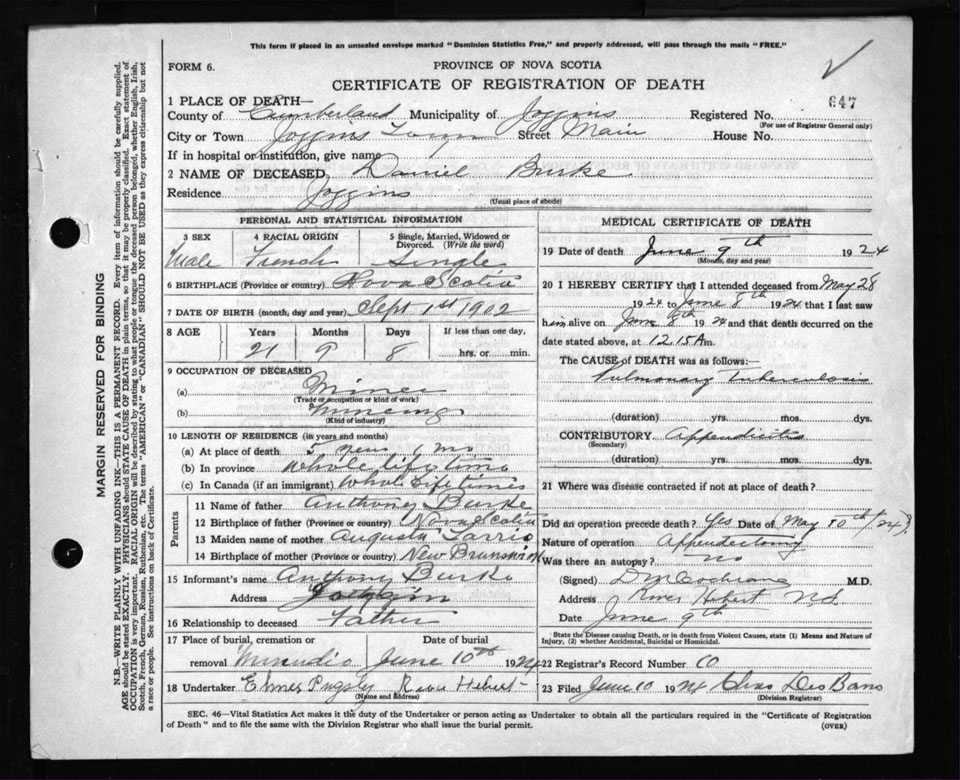 This form if placed in an unsealed envelope marked "Dominion Statistics Free," and properly addressed, will pass through the mails "FREE."
FORM 6.
PROVINCE OF NOVA SCOTIA
CERTIFICATE OF REGISTRATION OF DEATH
647
1 PLACE OF DEATH—
County of Cumberland Municipality of Joggins Registered No.
(For use of Registrar General only)
City or Town Joggins Town Street Main House No.
If in hospital or institution, give name
2 NAME OF DECEASED Daniel Burke
Residence Joggins
(Usual place of abode)
PERSONAL AND STATISTICAL INFORMATION
3 SEX 4 RACIAL ORIGIN 5 Single, Married, Widowed or Divorced. (Write the word)
Male French Single
6 BIRTHPLACE (Province or country) Nova Scotia
7 DATE OF BIRTH (month, day and year) Sept 1st 1902
8 AGE Years Months Days If less than one day,
21 9 8 hrs. or min.
9 OCCUPATION OF DECEASED
(a) Miner
(Trade or occupation or kind of work)
(b) Mineing
(Kind of industry)
10 LENGTH OF RESIDENCE (in years and months)
(a) At place of death mo
(b) In province Whole life time
(c) In Canada (if an immigrant) Whole Life times
Parents
11 Name of father Anthony Burke
12 Birthplace of father (Province or country) Nova Scotia
13 Maiden name of mother Augusta
14 Birthplace of mother (Province or country) New Brunswick
15 Informant's name Anthony Burke
Address Joggins
16 Relationship to deceased Father
17 Place of burial, cremation or Date of burial
removal Minudie June 10th 1924
18 Undertaker Elmer Pugsly River Hebert
(Name and address)
MEDICAL CERTIFICATE OF DEATH
19 Date of death June 9th 1924
(Month, day and year)
20 I HEREBY CERTIFY that I attended deceased from May 28
1924 to June 8th 1924 that I last saw
him alive on June 8th 1924 and that death occurred on the
date stated above, at 12.15 Am.
The CAUSE of DEATH was as follows:
Pulmonary Tuberculosis
(duration) yrs. mos. dys.
CONTRIBUTORY Appendicitis
(Secondary)
(duration) yrs. mos. dys.
21 Where was disease contracted if not at place of death?
Did an operation precede death? Yes Date of (May 10th/24).
Nature of operation Appendectomy
Was there an autopsy? no
(Signed) D M Cochrane M.D.
Address River Hebert N.S.
Date June 9th
State the Disease causing Death, or in death from Violent Causes, state (1) Means and Nature of
Injury, (2) whether Accidental, Suicidal or Homicidal.
22 Registrar's Record Number
23 Filed June 10 1924 Chas Des Barres
(Division Registrar)
SEC. 46—Vital Statistics Act makes it the duty of the Undertaker or person acting as Undertaker to obtain all the particulars required in the "Certificate of Registration
of Death" and to file the same with the Division Registrar who shall issue the burial permit.
(OVER)
MARGIN RESERVED FOR BINDING
N.B.—WRITE PLAINLY WITH UNFADING INK—THIS IS A PERMANENT RECORD. Every item of information should be carefully supplied.
AGE should be stated EXACTLY. PHYSICIANS should STATE CAUSE OF DEATH in plain terms, so that it may be properly classified. Exact statement of
OCCUPATION is very important. RACIAL ORIGIN will be described by stating to what people or tongue the deceased person belonged, whether English, Irish,
Scotch, French, German, Russian, Ruthenian, etc. The terms "AMERICAN" or "CANADIAN" SHOULD NOT BE USED as they express citizenship but not
a race or people. See instructions on back of Certificate.